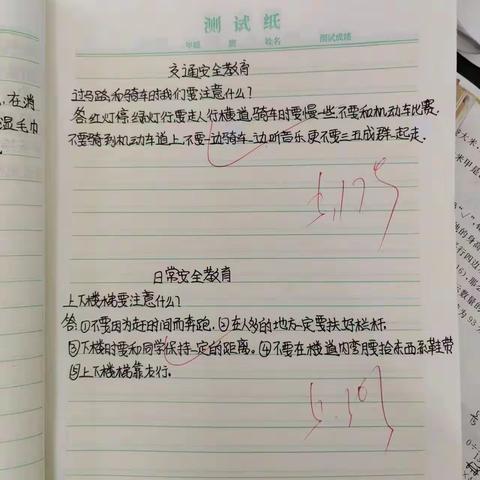 测试纸
年级 班 姓名 测试成绩
交通安全教育
过马路和骑车时我们要注意什么?
答:红灯停绿灯行要走人行横道,骑车时要慢一些不要和机动车比赛.
不要骑到机动车道上,不要一边骑车一边听音乐更不要三五成群一起走.
5.17号
日常安全教育
上下楼梯要注意什么?
答:①不要因为赶时间而奔跑.②在人多的地方一定要扶好栏杆.
③下楼时要和同学保持一定的距离。④不要在楼道内弯腰拾东西系鞋带
⑤上下楼梯靠右行.
在消
湿毛巾